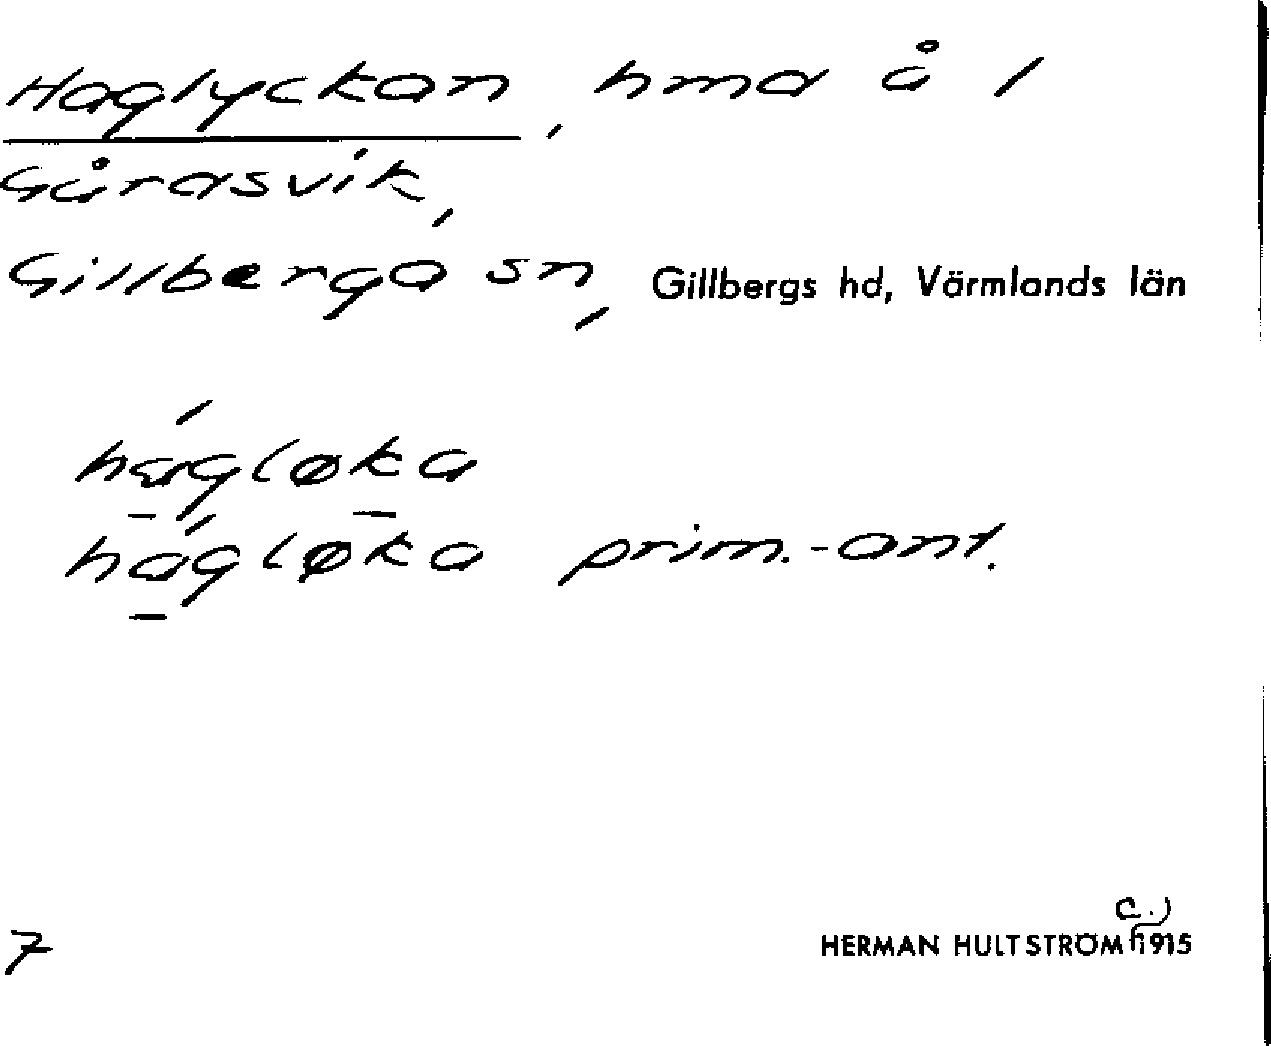 Haglyckan, hmd å 1
Gårdsvik,
Gillberga sn, Gillbergs hd, Värmlands län
hágløka
hágløka prim.-ant.
7
HERMAN HULTSTRÖM c.) 1915